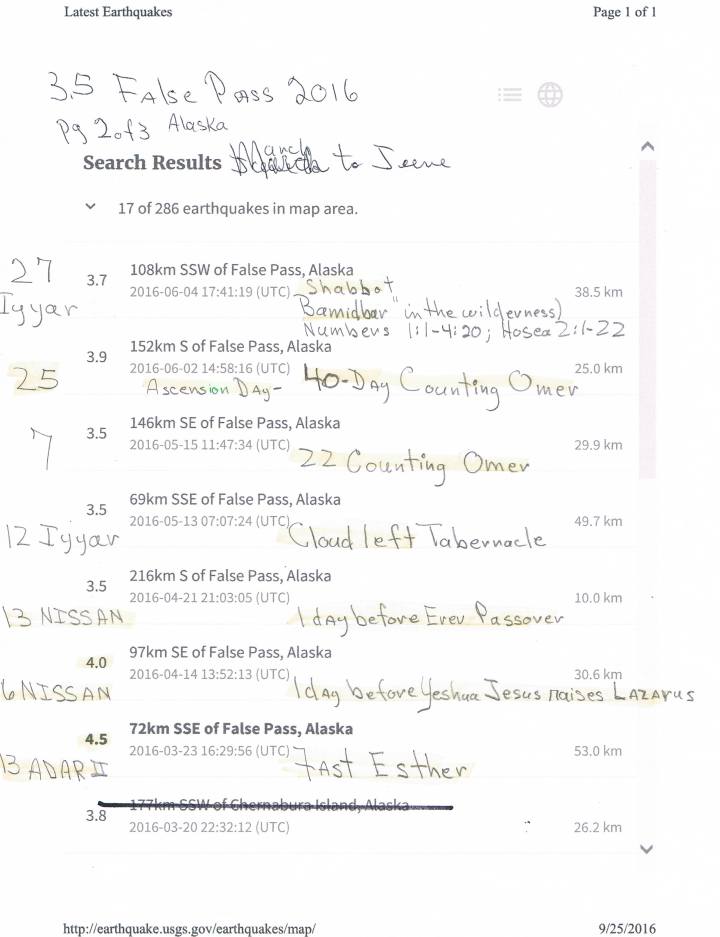 Latest Earthquakes Page 1 of 1
3.5 False Pass 2016
Pg 2 of 3 Alaska
Search Results March to Jeene
17 of 286 earthquakes in map area.
27 Iyyar
3.7 108km SSW of False Pass, Alaska
2016-06-04 17:41:19 (UTC) Shabbot 38.5 km
Bamidbar "in the wilderness)
Numbers 1:1-4:20; Hosea 2:1-22
3.9 152km S of False Pass, Alaska
25 2016-06-02 14:58:16 (UTC) 40-Day Counting Omer 25.0 km
Ascension Day-
3.5 146km SE of False Pass, Alaska
7 2016-05-15 11:47:34 (UTC) 22 Counting Omer 29.9 km
3.5 69km SSE of False Pass, Alaska
2016-05-13 07:07:24 (UTC) 49.7 km
12 Iyyar Cloud left Tabernacle
3.5 216km S of False Pass, Alaska
2016-04-21 21:03:05 (UTC) 10.0 km
13 NISSAN 1 day before Erev Passover
4.0 97km SE of False Pass, Alaska
2016-04-14 13:52:13 (UTC) 30.6 km
6 NISSAN 1 day before Yeshua Jesus raises LAZARUS
4.5 72km SSE of False Pass, Alaska
2016-03-23 16:29:56 (UTC) 53.0 km
13 ADAR II Fast Esther
3.8 177km SSW of Chernabura Island, Alaska
2016-03-20 22:32:12 (UTC) 26.2 km
http://earthquake.usgs.gov/earthquakes/map/ 9/25/2016